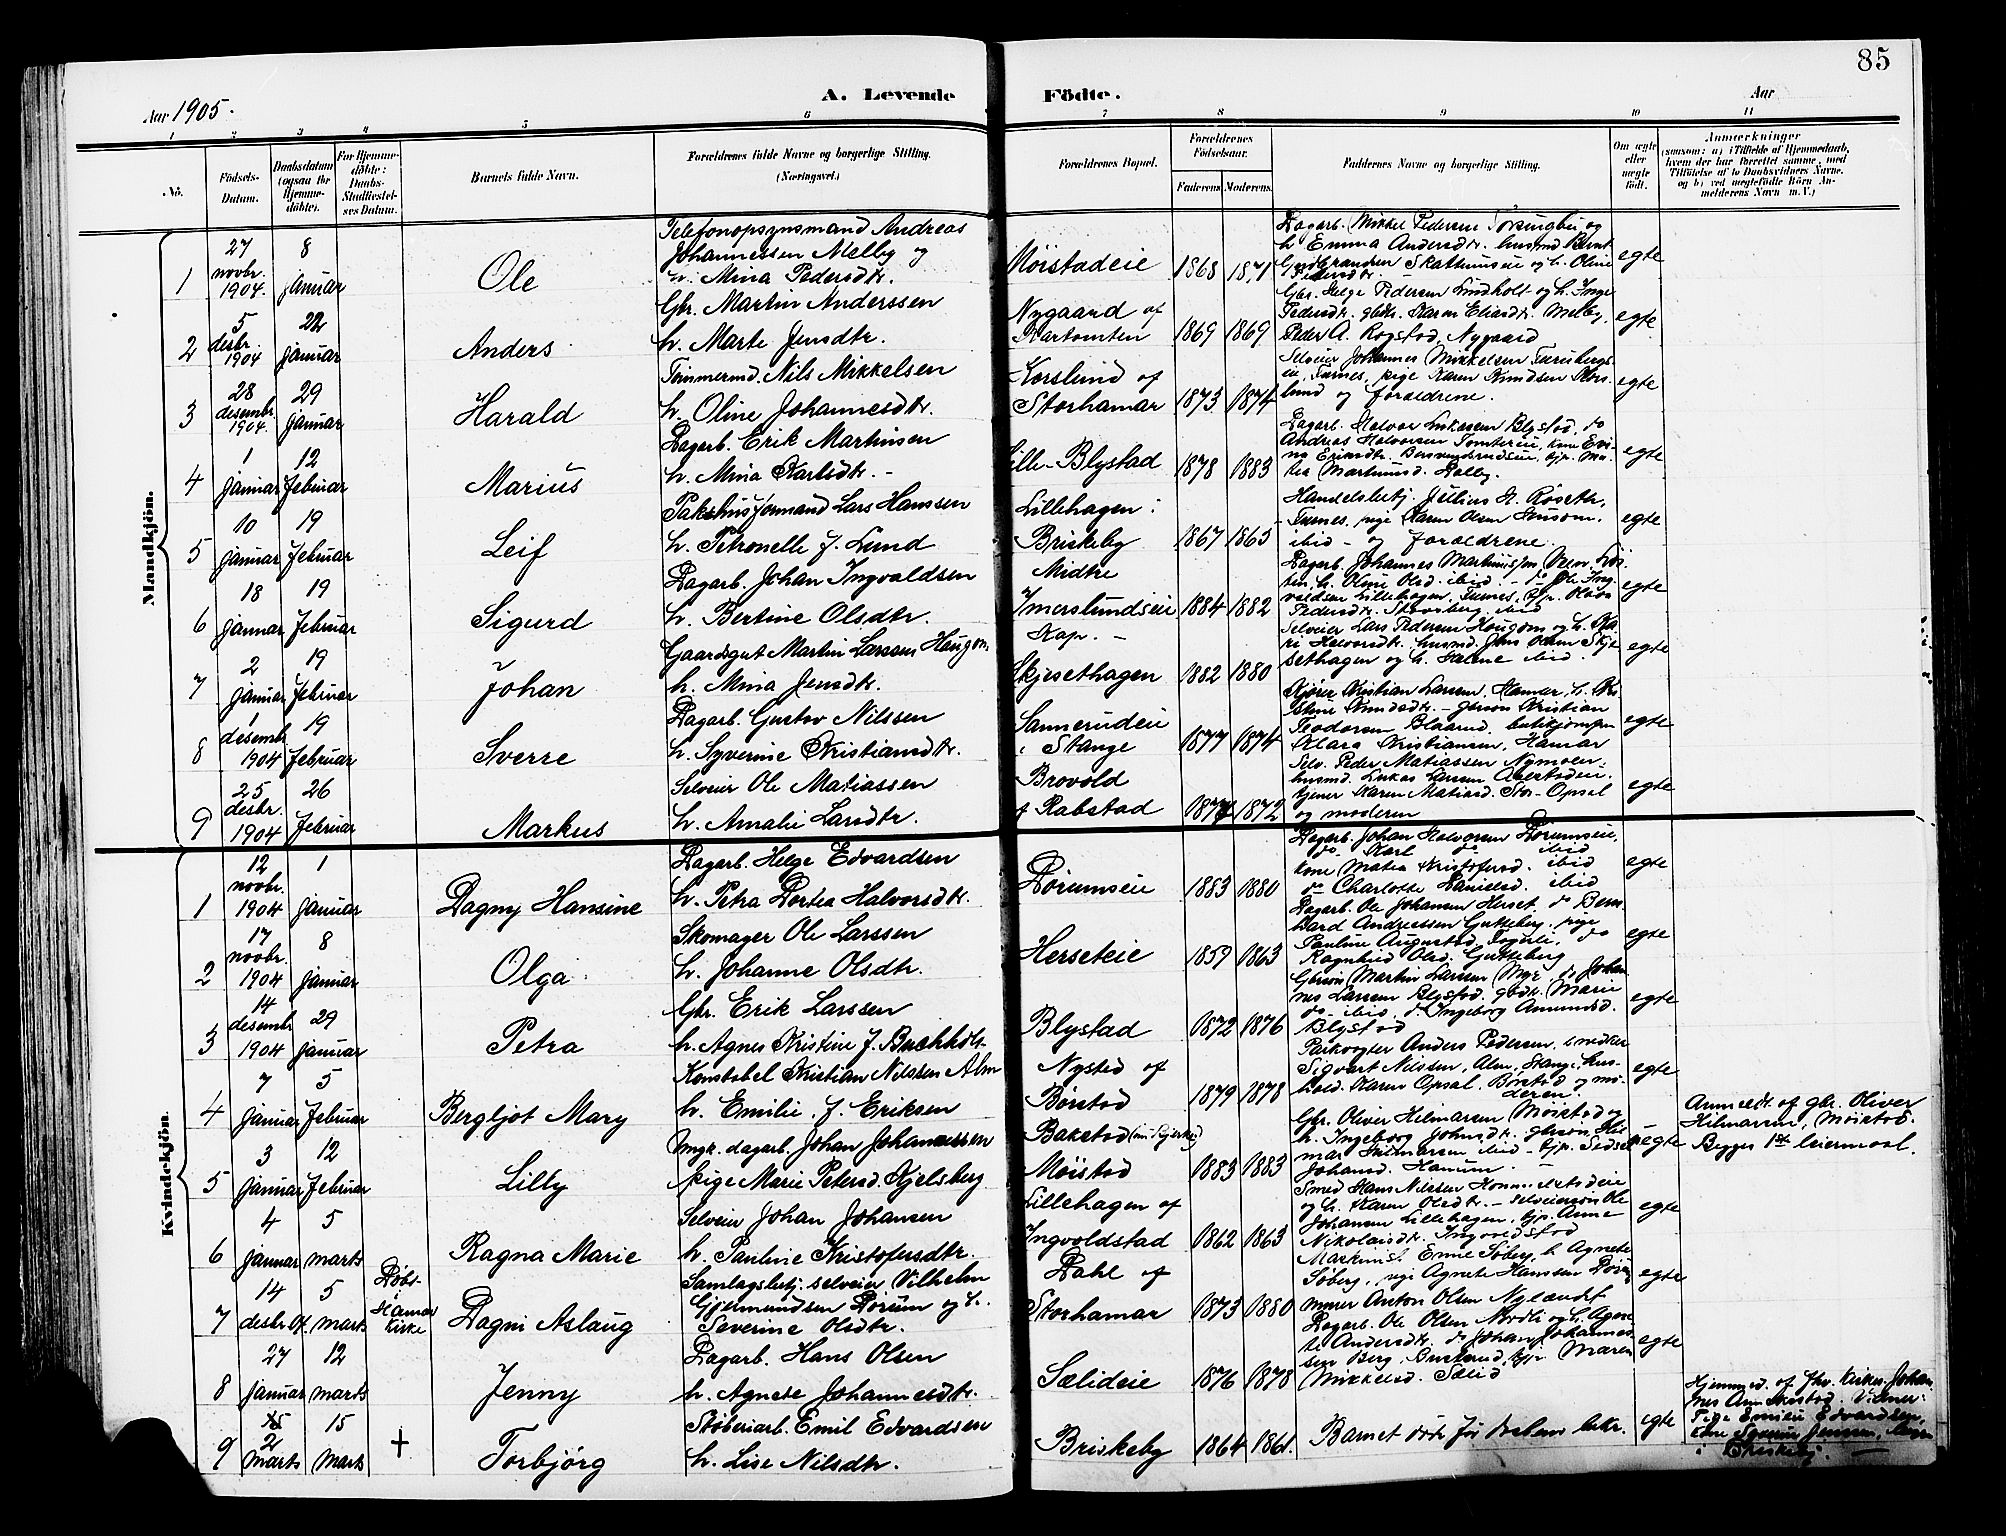 85
Aar 1905.
A. Levende Födte.
Aar
1 2 3 4 5 6 7 8 9 10 11
No.
Födsels-Datum.
Daabsdatum (ogsaa for Hjemme-döbte).
For Hjemme-döbte: Daabs-Stadfæstel-ses Datum.
Barnets fulde Navn.
Forældrenes fulde Navne og borgerlige Stilling.
(Næringsvei.)
Forældrenes Bopæl.
Forældrenes Födselsaar.
Faderens. Moderens.
Faddernes Navne og borgerlige Stilling.
Om ægte eller uægte födt.
Anmærkninger
(saasom: a) i Tilfælde af Hjemmedaab, hvem der har forrettet samme, med Tilföielse af to Daabsvidners Navne, og b) ved uægtefödte Börn Anmelderens Navn m. V.)
Mandkjön.
1 27 novbr. 1904. 8 januar Ole
Telefonopsynsmand Andreas
Johannessen Melby og
h. Mina Pedersdtr.
Møistadeie 1868 1871
Dagarb. Mikkel Pedersen
h. Emma Andersdtr. husmd Bernt
Gudbrandsen Skattumseie og h. Oline
Pedersdtr.
egte
2 5 desbr. 1904 22 januar Anders
Gbr. Martin Anderssen
h. Marte Jensdtr.
Nygaard af
Kartomten 1869 1869
Gbr. Helge Pedersen Lundholt og h. Inge
Pedersdtr. gbdtr. Karen Eliasdtr. Melby,
Peder A. Rogstad, Nygaard
egte
3 28 desembr. 1904. 29 januar Harald
Tømmermd. Nils Mikkelsen
h. Oline Johannesdtr.
Korslund af
Storhamar 1873 1874
Selveier Johannes Mikkelsen Furubergs-
eie, Furnes, pige Karen Knudsen Kors-
lund og forældrene.
egte
4 1 januar 12 Februar Marius
Dagarb. Erik Martinsen
h. Mina Karlsdtr.
Lille-Blystad 1878 1883
Dagarb. Halvor Lukassen Blystad, do
Andreas Halvorsen Tomtereie, kone
tea Martinsd. Dalby.
egte
5 10 januar 19 Februar Leif
Pakhusformand Lars Hanssen
h. Petronelle f. Lund
Lillehagen i
Briskeby 1867 1863
Handelsbetj. Julius H. Røseth,
Furnes, pige Karen Olsen Husom,
ibid og forældrene.
egte
6 18 januar 19 Februar Sigurd
Dagarb. Johan Ingvaldsen
h. Bertine Olsdtr.
Midtre
Imerslundseie 1884 1882
Dagarb. Johannes Martinussen,
Pedersdtr. Stavsberg, ibid
egte
7 2 januar 19 Februar Johan
Gaardsgut Martin Larssen Haugom
h. Mina Jensdtr.
Kap.
Skjesethagen 1882 1880
Selveier Lars Pedersen Haugom og h. Ka-
ri Halvorsdtr. husmd. Jens Olsen Skje-
sethagen og h. Helene ibid.
egte
8 1 desembr 1904 19 Februar Sverre
Dagarb. Gustav Nilssen
h. Syverine Kristiansdtr.
Sannerudeie
i Stange 1877 1874
Kjører Kristian Larssen, Hamar, h. Kri-
stine Knudsdtr. gbrsøn Kristian
Teodorsen Blaarud, butikjomfru
Klara Kristiansen, Hamar
egte
9 25 desbr. 1904 26 Februar Markus
Selveier Ole Matiassen
h. Amalie Larsdtr.
Brovold
f Rabstad 1874 1872
Selv. Peder Matiassen Nymoen
husmd. Lukas Larssen
tjener Karen Matiasd. Stor-Opsal
og moderen
egte
Kvindekjön.
1 12 novbr. 1904 1 januar Dagny Hansine
Dagarb. Helge Edvardsen
h. Petra Dortea Halvorsdtr.
Dørumseie 1883 1880
Dagarb. Johan Halvorsen Dørumseie,
do Karl do ibid
kone Matea Kristofersd. ibid
do Charlotte Danielsd. ibid
egte
2 17 novbr. 1904 8 januar Olga
Skomager Ole Larssen
h. Johanne Olsdtr.
Herseteie 1859 1863
Dagarb. Ole Johansen Herset, do Bern-
hard Andreassen Gutteberg, pige
Pauline Augustad, do
Ragnhild Olsd. Gutteberg
egte
3 14 desembr 1904 29 januar Petra
Gbr. Erik Larssen
h. Agnes Kristine f. Buchholt
Blystad 1872 1876
Gbrsøn Martin Larssen Myr, do Johan-
nes Larssen Blystad, gbdtr. Marie
do ibid, do Ingeborg Amundsd.
Blystad
egte
4 7 januar 5 Februar Bergljot Mary
Konstabel Kristian Nilssen Alm
h. Emilie f. Eriksen
Nysted af
Børstad 1879 1878
Parkvogter Anders Pedersen, smedker
Sigvart Nilssen, Alm, Stange, hus-
hold. Karen Opsal, Børstad og mo-
deren.
egte
5 3 januar 12 Februar Lilly
Ungk. dagarb. Johan Johannessen
pige Marie Petersd. Kjelsberg
Bakstad
Møistad 1883 1883
Gbr. Oliver Hilmarsen Møistad og
h. Ingeborg Johnsdtr. gbrsøn Hil-
mar Hilmarsen ibid tjp. Sidsel
Johansd. Hanum.
uegte
Anmeldt af gbr. Oliver
Hilmarsen, Møistad.
Begges 1ste leiermaal.
6 4 januar 5 marts Ragna Marie
Selveier Johan Johansen
h. Pauline Kristofersdtr.
Lillehagen af
Ingvoldstad 1862 1863
Smed Hans Nilssen
og h. Karen Olsdtr. selveiersøn Ole
Johansen Lillehagen, tjp. Anne
Nikolaisdtr. Ingvoldstad
egte
7 14 desbr. 04 5 marts Døbt i Hamar Kirke Dagni Aslaug
Samlagsbetj. selveier Vilhelm
Gjermundsen Dørum og h.
Severine Olsdtr.
Dahl af
Storhamar 1873 1880
Maskinist Enne Søberg, h. Agnete
Søberg, pige Agnete Hanssen
murer Anton Olsen Nylændet
egte
8 27 januar 12 marts Jenny
Dagarb. Hans Olsen
h. Agnese Johannesdtr.
Sælideie 1876 1878
Dagarb. Ole Olsen Nordli og h. Agne-
te Andersdtr. do Johan Johannes-
sen Berg, tjp. Maren
Mikkelsd. Sælid
egte
9 2 Marts 15 Marts + Torbjørg
Støberiarb. Emil Edvardsen
h. Lise Nilsdtr.
Briskeby 1864 1861.
Barnet døde før
egte
Hjemmed. af
Pige Emilie Edvardsen,
i Briskeby.